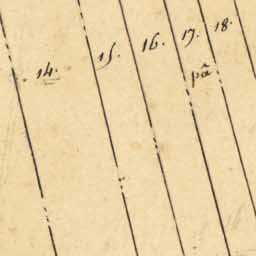 14. 15. 16. 17. 18.
pã